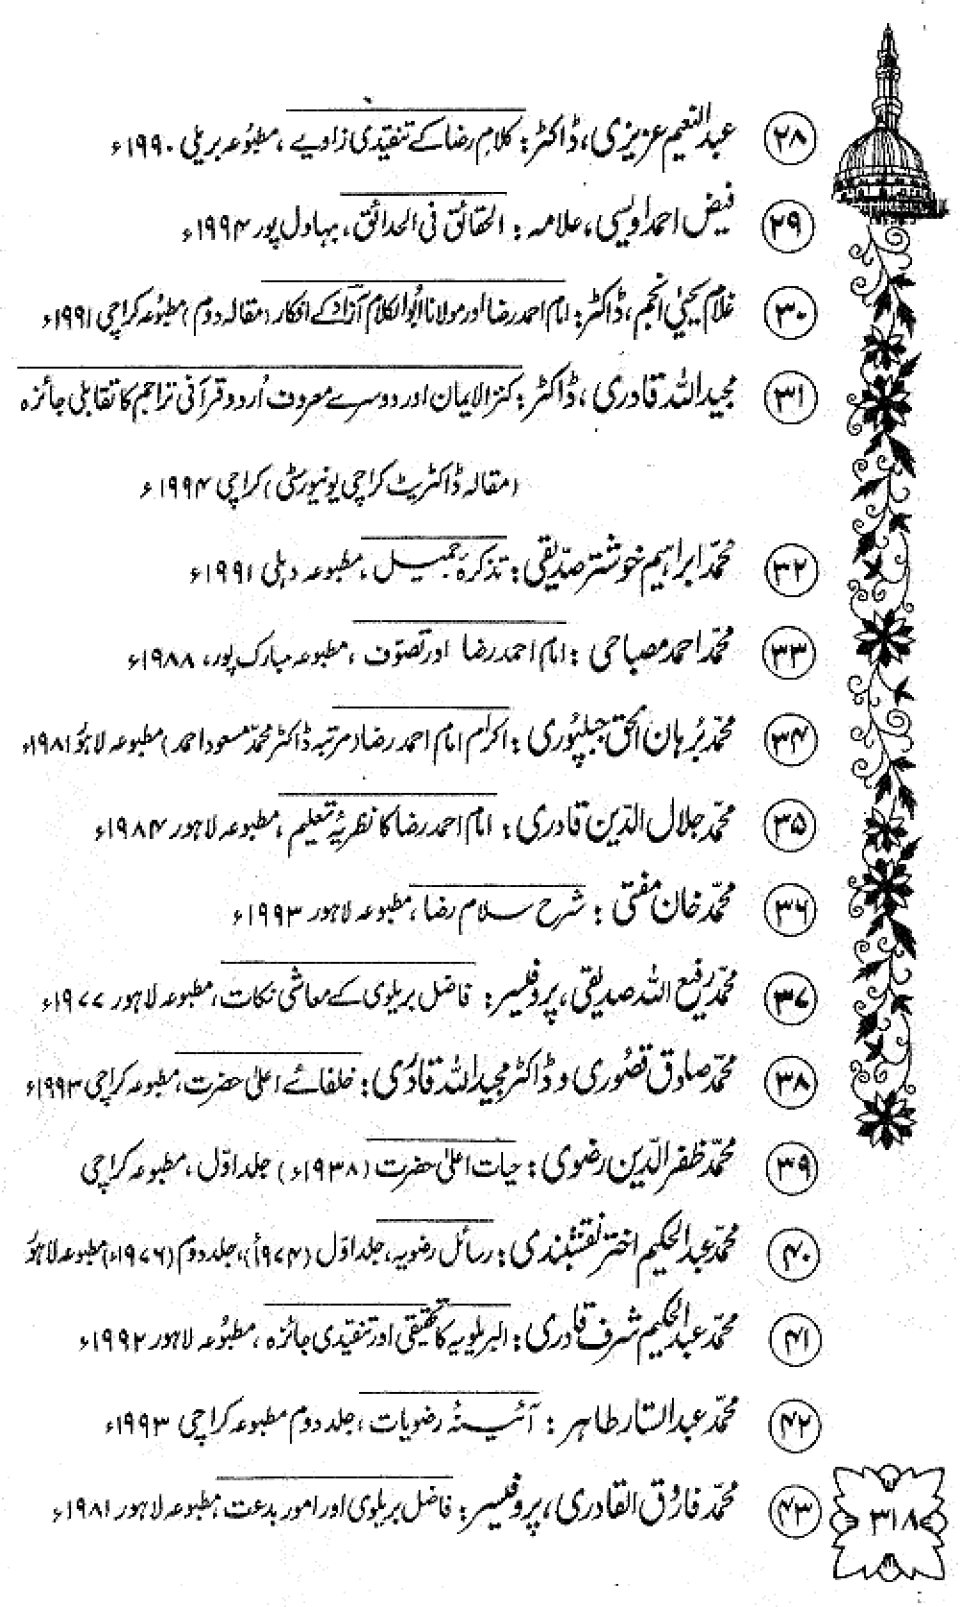 ۲۸ عبدالنعیم عزیزی، ڈاکٹر: کلامِ رضا کے تنقیدی زاویے، مطبوعہ بریلی ۱۹۹۰ء
۲۹ فیض احمد اویسی، علامہ: الحقائق فی الحدائق، بہاول پور ۱۹۹۴ء
۳۰ غلام یحییٰ انجم، ڈاکٹر: امام احمد رضا اور مولانا ابوالکلام آزاد کے افکار (مقالہ دوم) مطبوعہ کراچی ۱۹۹۱ء
۳۱ مجید اللہ قادری، ڈاکٹر: کنز الایمان اور دوسرے معروف اُردو قرآنی تراجم کا تقابلی جائزہ
(مقالہ ڈاکٹریٹ کراچی یونیورسٹی) کراچی ۱۹۹۴ء
۳۲ محمّد ابراہیم خوشتر صدّیقی: تذکرہٴ جمیل، مطبوعہ دہلی ۱۹۹۱ء
۳۳ محمّد احمد مصباحی: امام احمد رضا اور تصوّف، مطبوعہ مبارک پور، ۱۹۸۸ء
۳۴ محمّد بُرہان الحق جبلپوری: اکرام امام احمد رضا (مرتبہ ڈاکٹر محمّد مسعود احمد) مطبوعہ لاہور ۱۹۸۱ء
۳۵ محمّد جلال الدّین قادری: امام احمد رضا کا نظریۂ تعلیم، مطبوعہ لاہور ۱۹۸۴ء
۳۶ محمّد خان مفتی: شرح سلام رضا، مطبوعہ لاہور ۱۹۹۳ء
۳۷ محمّد رفیع اللہ صدیقی، پروفیسر: فاضل بریلوی کے معاشی نکات، مطبوعہ لاہور ۱۹۷۷ء
۳۸ محمّد صادق قصُوری و ڈاکٹر مجید اللہ قادری: خلفائے اعلیٰ حضرت، مطبوعہ کراچی ۱۹۹۳ء
۳۹ محمّد ظفر الدّین رضوی: حیات اعلیٰ حضرت (۱۹۳۸ء) جلد اوّل، مطبوعہ کراچی
۴۰ محمّد عبدالحکیم اختر نقشبندی: رسائل رضویہ، جلد اوّل (۱۹۷۴ء)، جلد دوم (۱۹۷۶ء) مطبوعہ لاہور
۴۱ محمّد عبدالحکیم شرف قادری: البریلویہ کا تحقیقی اور تنقیدی جائزہ، مطبُوعہ لاہور ۱۹۹۲ء
۴۲ محمّد عبدالستار طاہر: آئینۂ رضویات، جلد دوم مطبوعہ کراچی ۱۹۹۳ء
۴۳ محمّد فارُوق القادری، پروفیسر: فاضل بریلوی اور امور بدعت، مطبوعہ لاہور ۱۹۸۱ء
۳۱۸